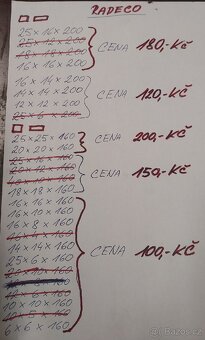 RADECO
25 x 16 x 200
25 x 12 x 200
18 x 18 x 200
16 x 16 x 200
CENA 180,-Kč
16 x 14 x 200
14 x 14 x 200
12 x 12 x 200
25 x 6 x 200
CENA 120,-Kč
25 x 25 x 160
20 x 20 x 160
CENA 200,-Kč
25 x 16 x 160
20 x 12 x 160
18 x 18 x 160
CENA 150,-Kč
16 x 16 x 160
16 x 10 x 160
16 x 8 x 160
14 x 14 x 160
25 x 6 x 160
CENA 100,-Kč
12 x 6 x 160
10 x 5 x 160
6 x 6 x 160
Bazoš.cz